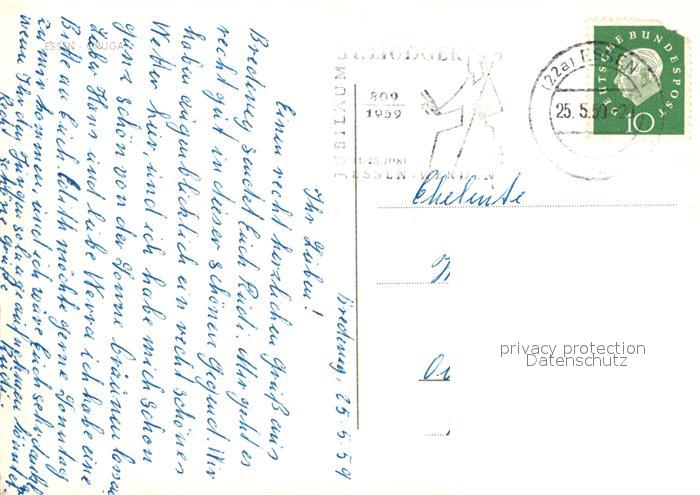 ESSEN - GRUGA
Bredeney, 25.5.59
Ihr Lieben!
Einen recht herzlichen Gruß aus
Bredeney sendet Euch Rudi. Mir geht es
recht gut in dieser schönen Gegend. Wir
haben augenblicklich ein recht schönes
Wetter hier, und ich habe mich schon
ganz schön von der Sonne bräunen lassen
Lieber Hans und liebe ich habe eine
Bitte an Euch. Edith möchte gerne Sonntag
zu mir kommen, und ich wäre Euch sehr dankbar
wenn Ihr den Jungen solange aufnehmen könntet.
Recht schöne Grüße Rudi.
JUBILÄUM ST. LUDGER
809
1959
JUNI
ESSEN-WERDEN
(22a) ESSEN
25.5.59
DEUTSCHE BUNDESPOST
10
Eheleute
privacy protection
Datenschutz